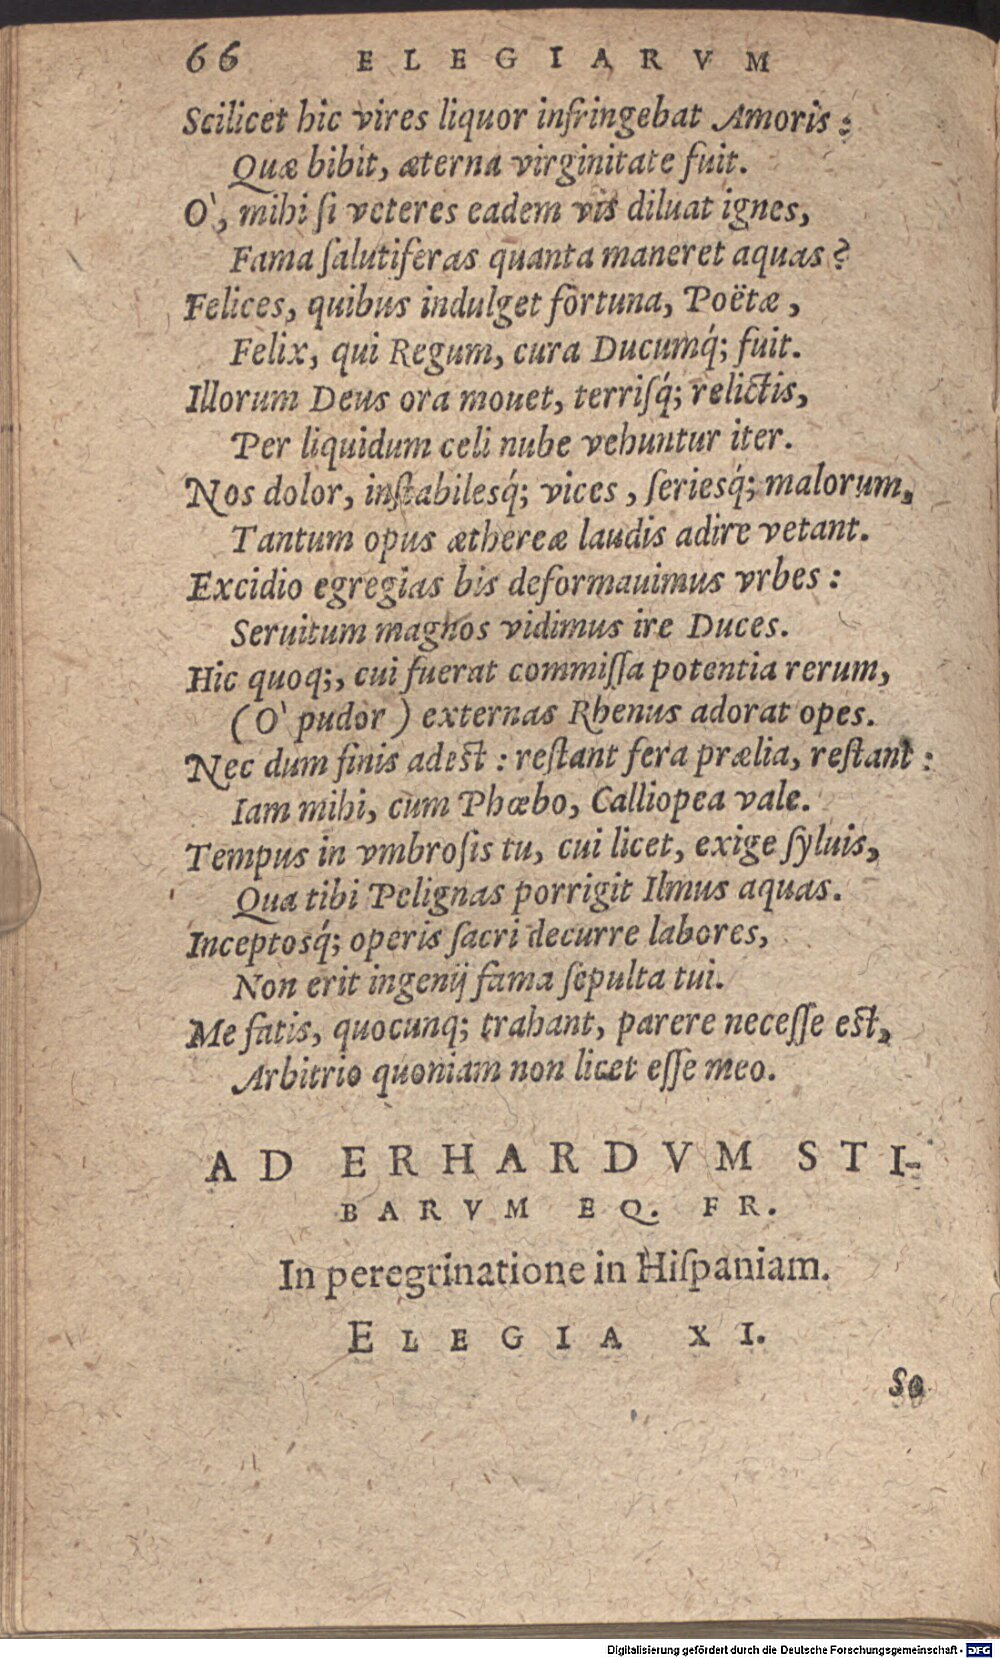 66 ELEGIARVM
Scilicet hic vires liquor infringebat Amoris:
Quæ bibit, æterna virginitate fuit.
O`, mihi ſi veteres eadem vis diluat ignes,
Fama ſalutiferas quanta maneret aquas?
Felices, quibus indulget fortuna, Poëtæ,
Felix, qui Regum, cura Ducumq́; fuit.
Illorum Deus ora mouet, terriſq́; relictis,
Per liquidum celi nube vehuntur iter.
Nos dolor, inſtabilesq́; vices, ſeriesq́; malorum,
Tantum opus æthereæ laudis adire vetant.
Excidio egregias bis deformauimus vrbes:
Seruitum magnos vidimus ire Duces.
Hic quoq;, cui fuerat commiſſa potentia rerum,
(O` pudor) externas Rhenus adorat opes.
Nec dum finis adest: reſtant fera prælia, reſtant:
Iam mihi, cum Phœbo, Calliopea vale.
Tempus in vmbroſis tu, cui licet, exige ſyluis,
Qua tibi Pelignas porrigit Ilmus aquas.
Inceptosq́; operis ſacri decurre labores,
Non erit ingenij fama ſepulta tui.
Me fatis, quocunq; trahant, parere neceſſe est,
Arbitrio quoniam non licet eſſe meo.
AD ERHARDVM STI-
BARVM EQ. FR.
In peregrinatione in Hiſpaniam.
ELEGIA XI.
So
Digitalisierung gefördert durch die Deutsche Forschungsgemeinschaft - DFG